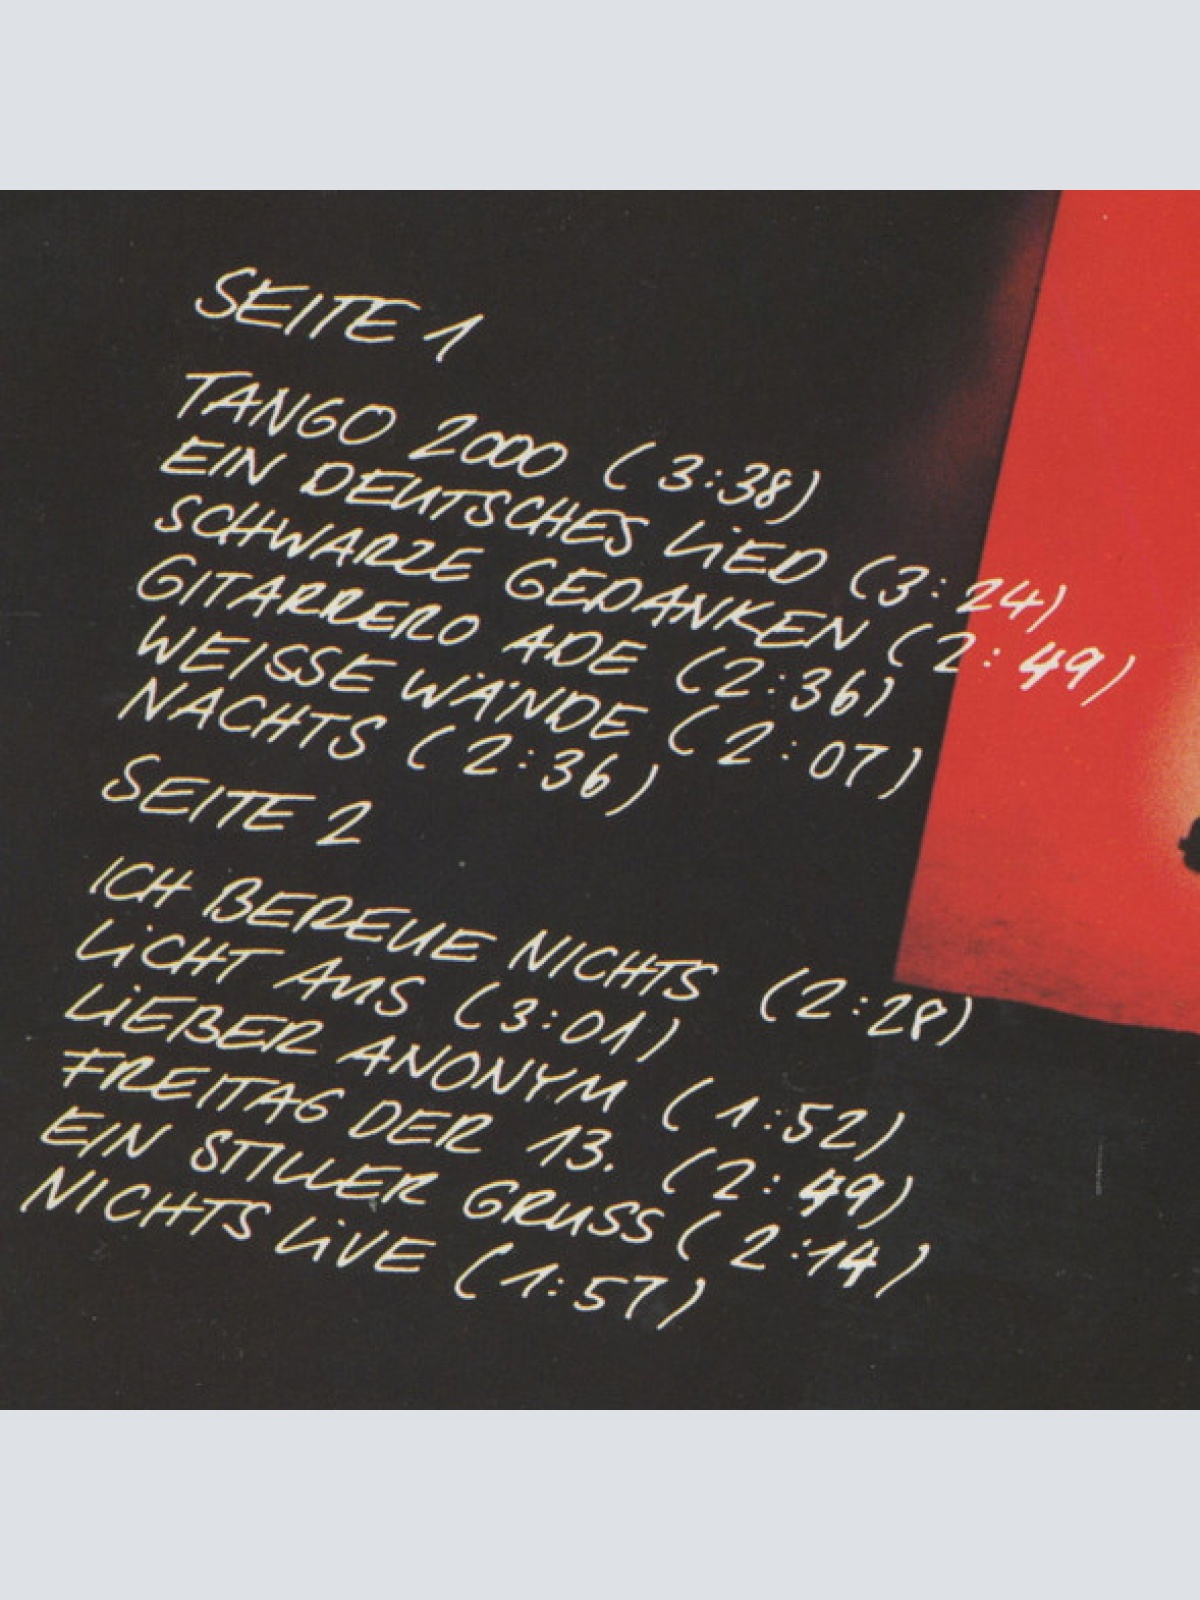 SEITE 1
TANGO 2000 (3:38)
EIN DEUTSCHES LiED (3:24)
SCHWARZE GEDANKEN (2:49)
GITARRERO ADE (2:36)
WEISSE WÄNDE (2:07)
NACHTS (2:36)
SEITE 2
ICH BEREUE NICHTS (2:28)
LiCHT AUS (3:01)
LiEBER ANONYM (1:52)
FREITAG DER 13. (2:49)
EIN STILLER GRUSS (2:14)
NICHTS LiVE (1:57)